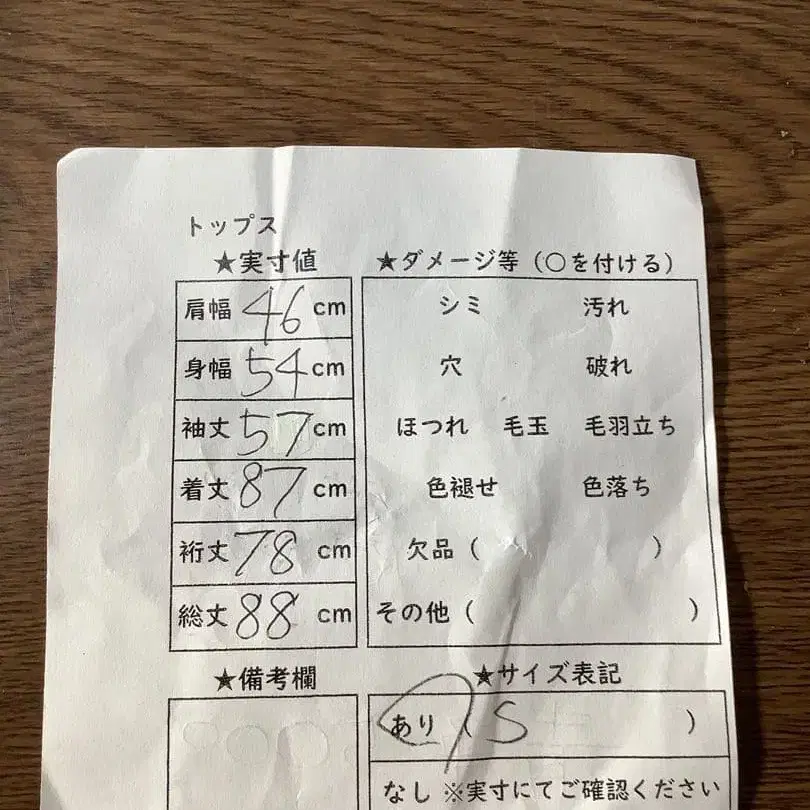 トップス
★実寸値
肩幅 46 cm
身幅 54 cm
袖丈 57 cm
着丈 87 cm
裄丈 78 cm
総丈 88 cm
★ダメージ等（○を付ける）
シミ 汚れ
穴 破れ
ほつれ 毛玉 毛羽立ち
色褪せ 色落ち
欠品（ ）
その他（ ）
★備考欄
★サイズ表記
あり（ S ）
なし ※実寸にてご確認ください